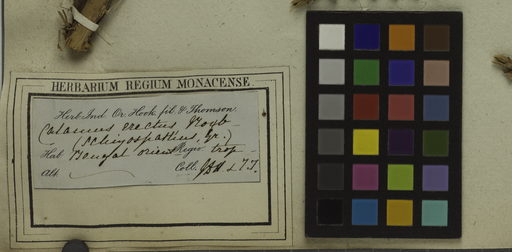 HERBARIUM REGIUM MONACENSE.
Herb. Ind. Or. Hook. fil. & Thomson.
Calamus erectus Roxb
(Schizospathus, Gr.)
Hab. Bengal orient Regio trop
Alt. Coll. JDH & T.T.